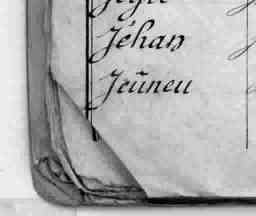 Jéhan
Jeŭneu